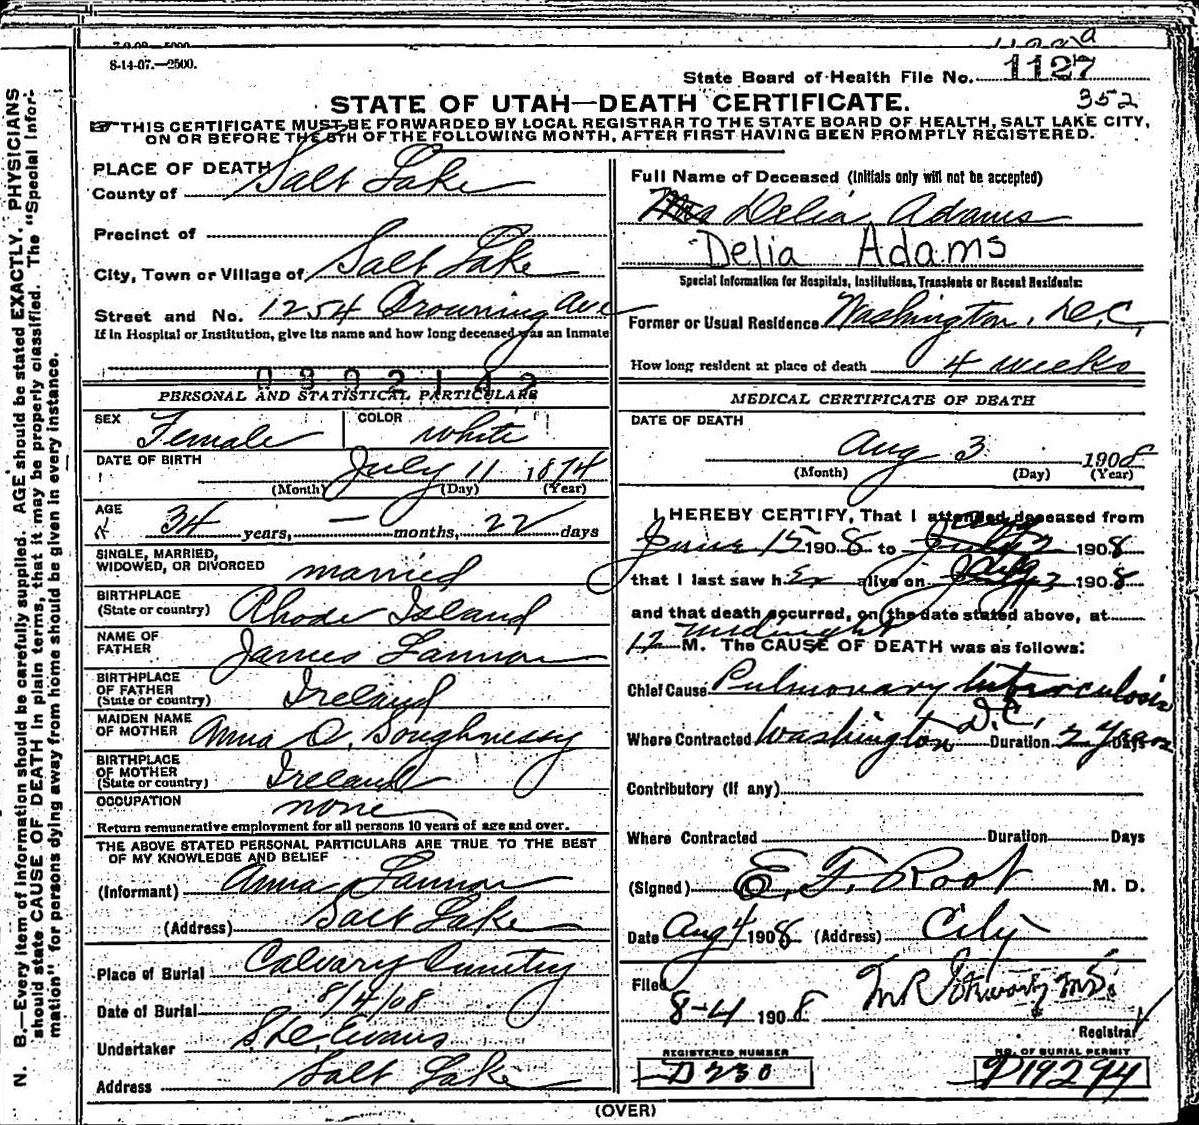 8-14-07.—2500.
State Board of Health File No. 1127
352
STATE OF UTAH—DEATH CERTIFICATE.
THIS CERTIFICATE MUST BE FORWARDED BY LOCAL REGISTRAR TO THE STATE BOARD OF HEALTH, SALT LAKE CITY,
ON OR BEFORE THE 5TH OF THE FOLLOWING MONTH, AFTER FIRST HAVING BEEN PROMPTLY REGISTERED.
N. B.—Every item of information should be carefully supplied. AGE should be stated EXACTLY. PHYSICIANS
should state CAUSE OF DEATH in plain terms, that it may be properly classified. The "Special Infor-
mation" for persons dying away from home should be given in every instance.
PLACE OF DEATH
County of Salt Lake
Precinct of
City, Town or Village of Salt Lake
Street and No. 1254 Browning Ave
If in Hospital or Institution, give its name and how long deceased was an inmate
0302142
PERSONAL AND STATISTICAL PARTICULARS
SEX Female COLOR White
DATE OF BIRTH July 11 1874
(Month) (Day) (Year)
AGE 34 years, — months, 22 days
SINGLE, MARRIED,
WIDOWED, OR DIVORCED married
BIRTHPLACE
(State or country) Rhode Island
NAME OF
FATHER James Lannon
BIRTHPLACE
OF FATHER
(State or country) Ireland
MAIDEN NAME
OF MOTHER Anna O. Soughnessy
BIRTHPLACE
OF MOTHER
(State or country) Ireland
OCCUPATION none
Return remunerative employment for all persons 10 years of age and over.
THE ABOVE STATED PERSONAL PARTICULARS ARE TRUE TO THE BEST
OF MY KNOWLEDGE AND BELIEF
(Informant) Anna Lannon
(Address) Salt Lake
Place of Burial Calvary Cemetery
Date of Burial 8/4/08
Undertaker Evans
Address Salt Lake
Full Name of Deceased (Initials only will not be accepted)
Mrs Delia Adams
Delia Adams
Special Information for Hospitals, Institutions, Transients or Recent Residents:
Former or Usual Residence Washington, D.C.
How long resident at place of death 4 weeks
MEDICAL CERTIFICATE OF DEATH
DATE OF DEATH
Aug 3 1908
(Month) (Day) (Year)
I HEREBY CERTIFY, That I attended deceased from
June 15 1908 to 1908
that I last saw her alive on 1908
and that death occurred, on the date stated above, at
12 midnight M. The CAUSE OF DEATH was as follows:
Chief Cause Pulmonary tuberculosis
Where Contracted Washington D.C. Duration 2 years Days
Contributory (If any)
Where Contracted Duration Days
(Signed) E. F. Root M. D.
Date Aug 4 1908 (Address) City
Filed
8-4 1908
Registrar
REGISTERED NUMBER
D 230
NO. OF BURIAL PERMIT
P19294
(OVER)